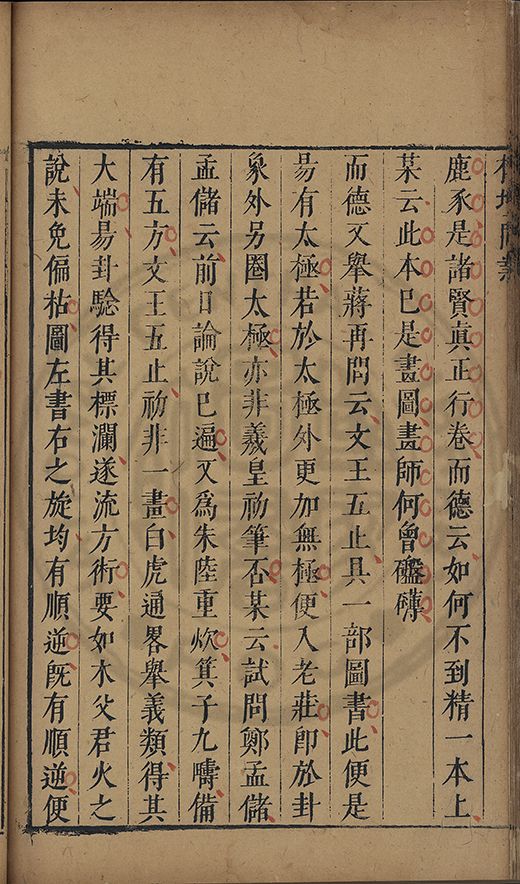 榕壇問業
鹿豕是諸賢真正行卷而德云如何不到精一本上
某云此本已是畫圖畫師何曾礛礴
而德又舉蔣再問云文王五止具一部圖書此便是
易有太極若於太極外更加無極便入老莊卽於卦
象外另圈太極亦非羲皇初筆否某云試問鄭孟儲
孟儲云前日論說已遍又為朱陸重炊箕子九疇備
有五方文王五止初非一畫白虎通畧舉義類得其
大端易卦騐得其標瀾遂流方術要如木父君火之
說未免偏枯圖左書右之旋均有順逆旣有順逆便